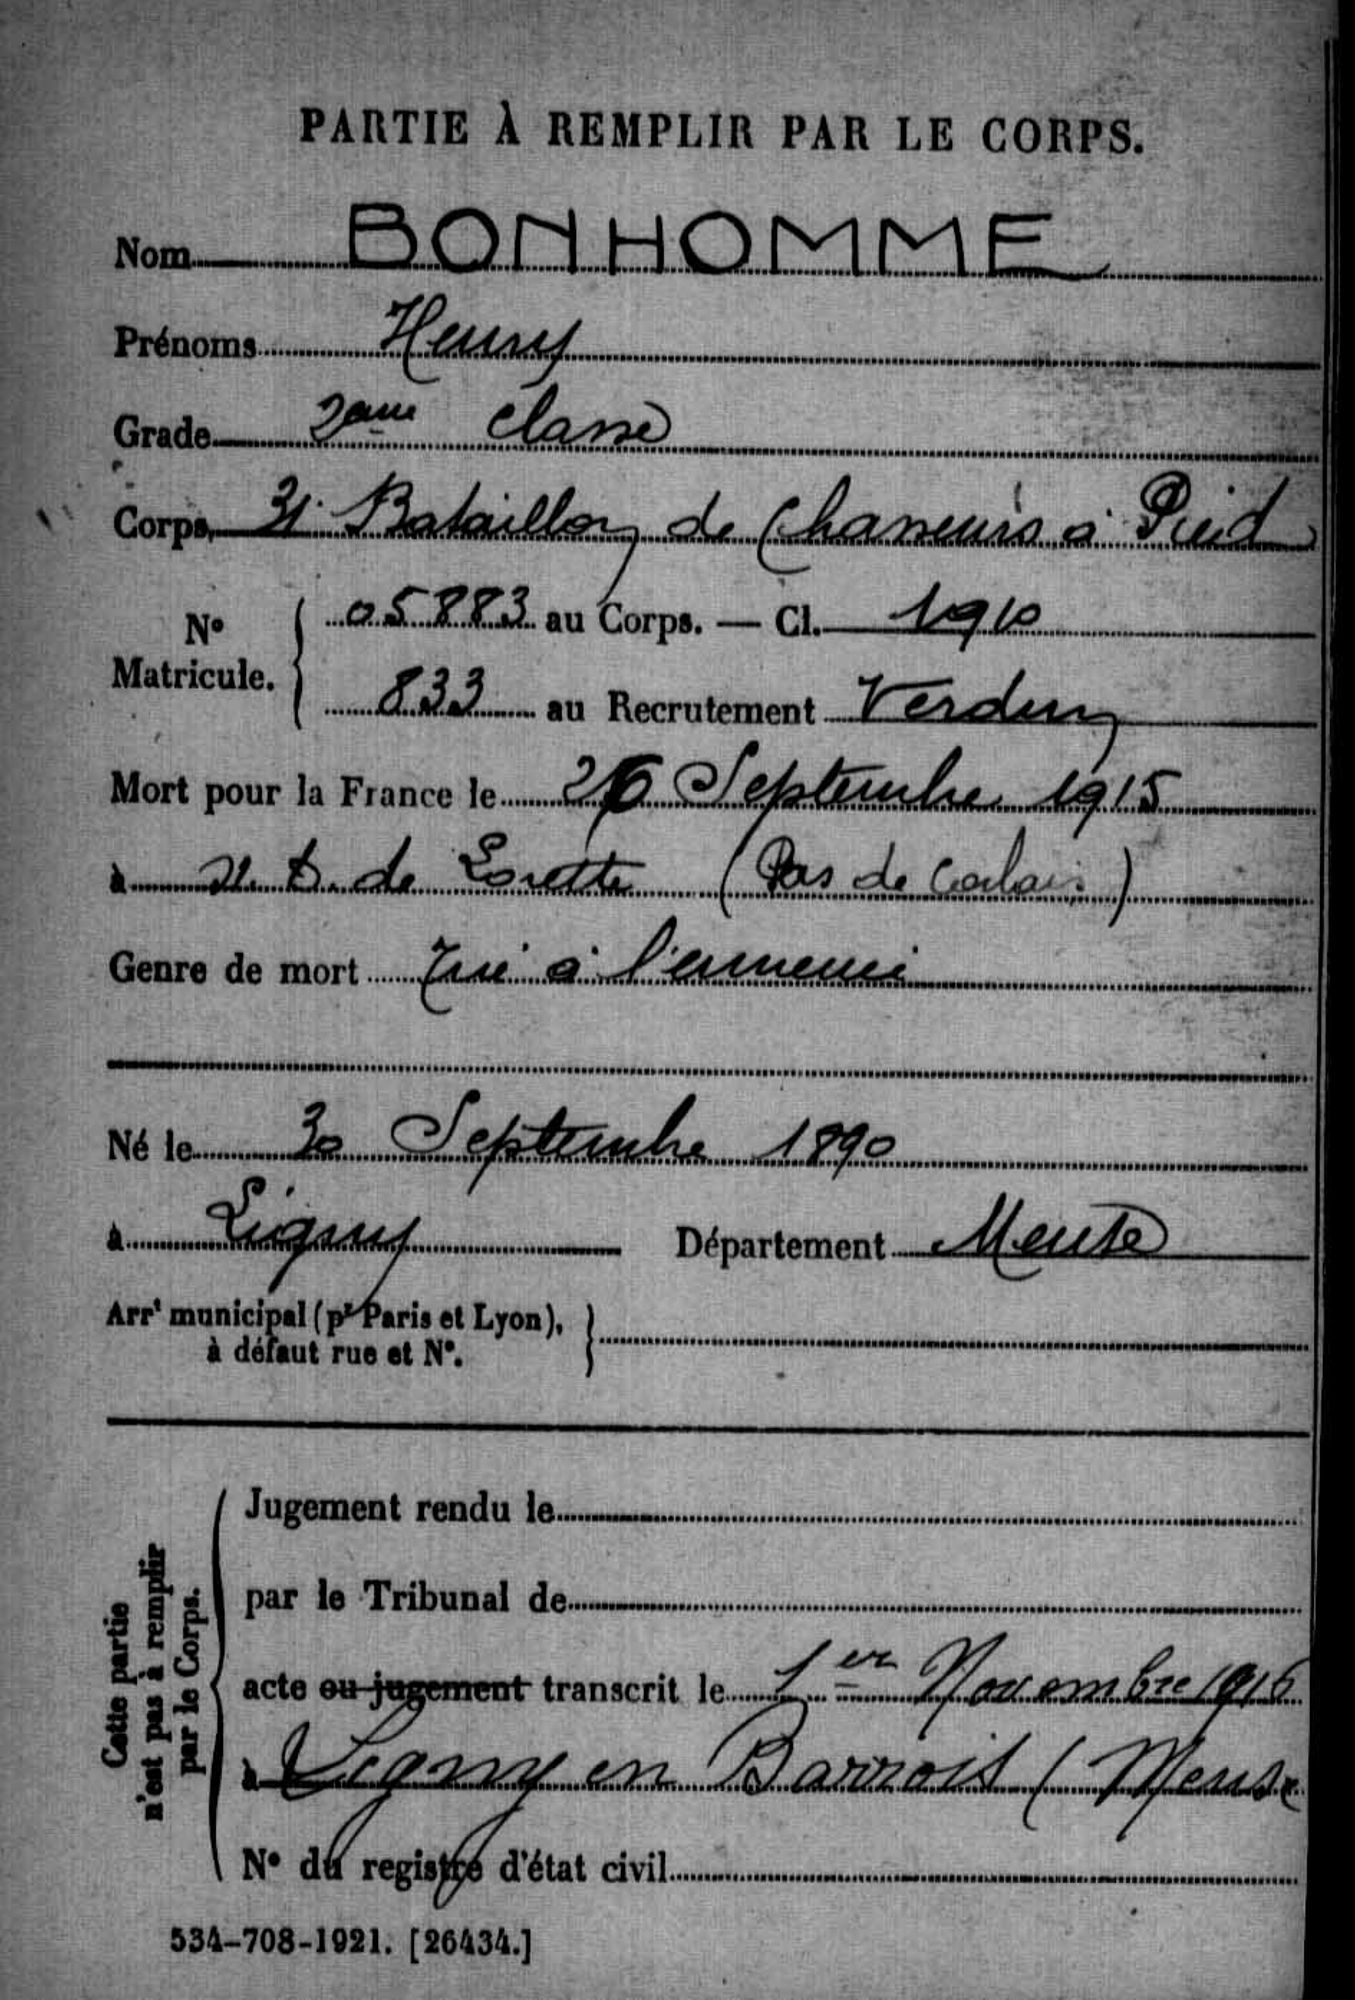 PARTIE À REMPLIR PAR LE CORPS.
Nom BONHOMME
Prénoms Henry
Grade 2ème Classe
Corps 31 Bataillon de Chasseurs à Pied
N° Matricule. 05883 au Corps. — Cl. 1910
833 au Recrutement Verdun
Mort pour la France le 26 Septembre 1915
à N. D. de Lorette (Pas de Calais)
Genre de mort Tué à l'ennemi
Né le 30 Septembre 1890
à Ligny Département Meuse
Arrt municipal (pr Paris et Lyon),
à défaut rue et N°.
Cette partie
n'est pas à remplir
par le Corps.
Jugement rendu le
par le Tribunal de
acte ou jugement transcrit le 1er Novembre 1916
à Ligny en Barrois (Meuse
N° du registre d'état civil
534-708-1921. [26434.]